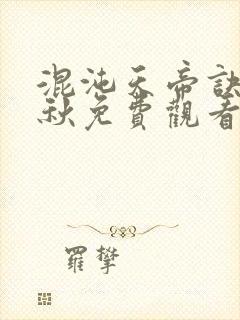 混沌天帝訣
秋免費觀看
羅攀